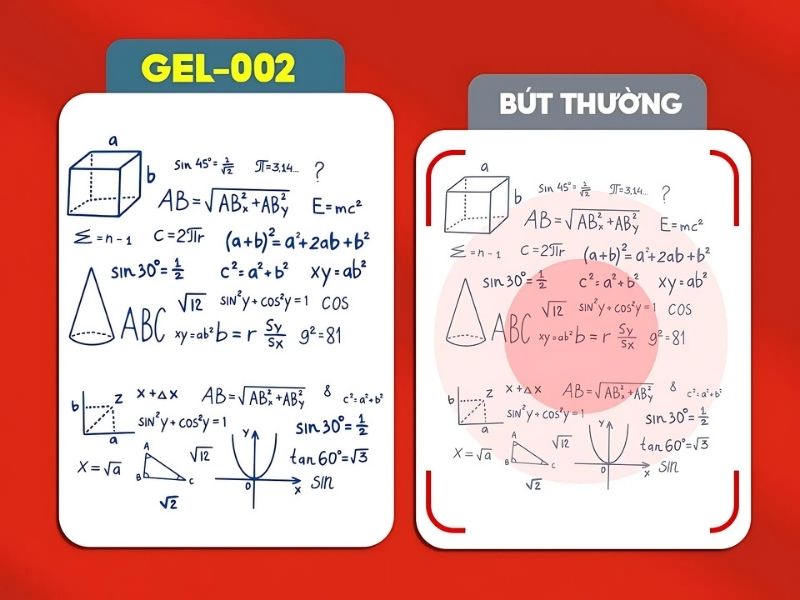 GEL-002
a
b
sin 45° = 1/√2 π=3,14... ?
AB = √AB²ₓ + AB²ᵧ E=mc²
Σ = n - 1 C = 2πr (a+b)² = a² + 2ab + b²
sin 30° = 1/2 c² = a² + b² xy = ab²
√12 sin²y + cos²y = 1 COS
ABC xy = ab² b = r Sy/Sx g² = 81
b z x + Δx AB = √AB²ₓ + AB²ᵧ 8 c² = a² + b²
a sin²y + cos²y = 1 sin 30° = 1/2
X = √a A B C √12 y 0 x tan 60° = √3
√2 sin
BÚT THƯỜNG
a
b
sin 45° = 1/√2 π=3,14... ?
AB = √AB²ₓ + AB²ᵧ E=mc²
Σ = n - 1 C = 2πr (a+b)² = a² + 2ab + b²
sin 30° = 1/2 c² = a² + b² xy = ab²
√12 sin²y + cos²y = 1 COS
ABC xy = ab² b = r Sy/Sx g² = 81
b z x + Δx AB = √AB²ₓ + AB²ᵧ 8 c² = a² + b²
a sin²y + cos²y = 1 sin 30° = 1/2
X = √a A B C √12 y 0 x tan 60° = √3
√2 sin